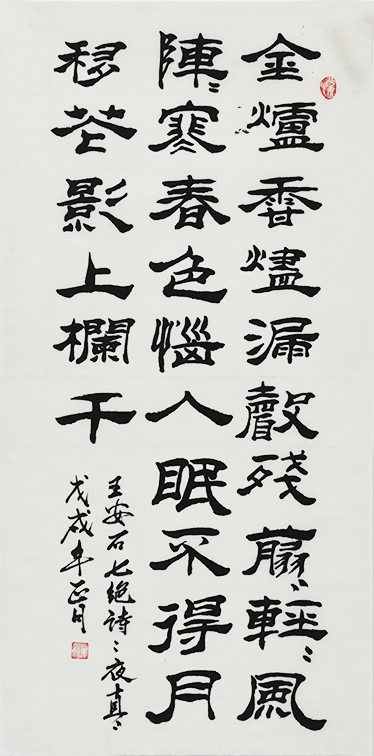 金爐香燼漏聲殘翦〻輕〻風
陣〻寒春色惱人眠不得月
移花影上欄干
王安石七绝詩〻夜真〻
戊戌年正月